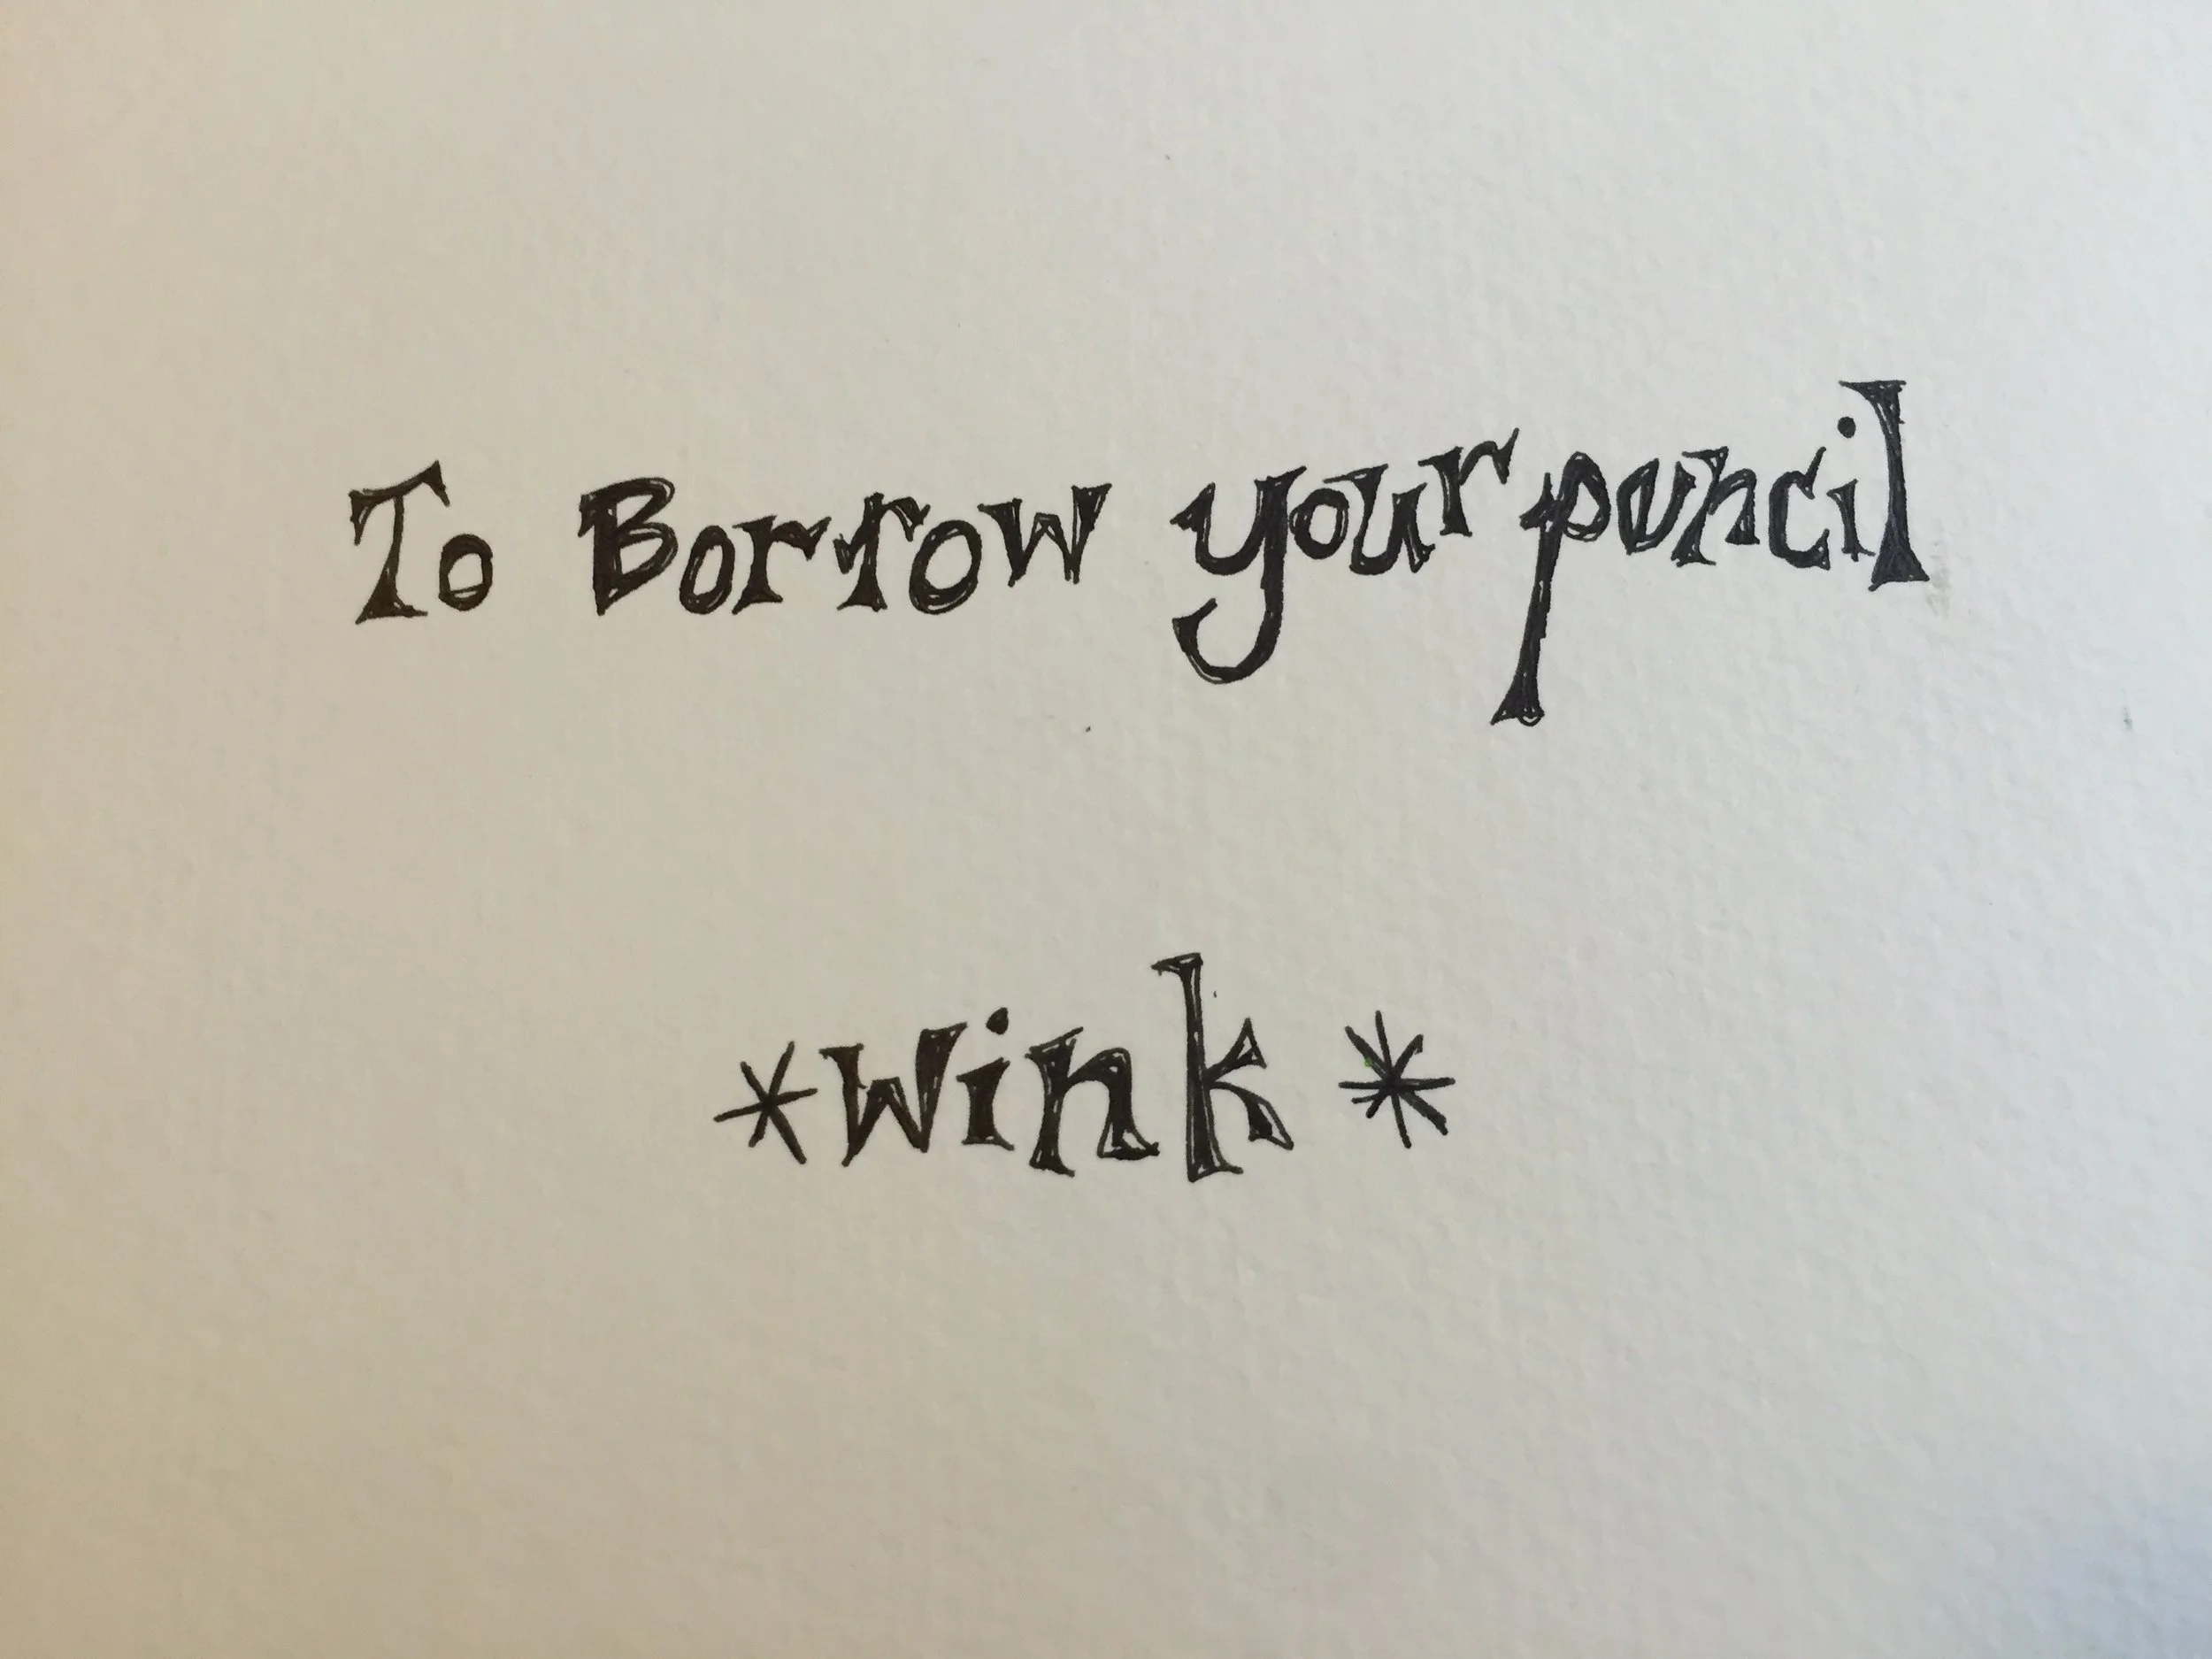 To Borrow your puncil
*wink*